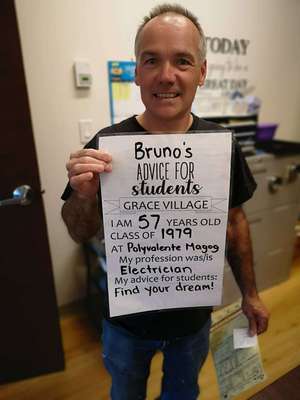 TODAY
Bruno's
ADVICE FOR
students
GRACE VILLAGE
I AM 57 YEARS OLD
CLASS OF 1979
AT Polyvalente Magog
My profession was/is
Electrician
My advice for students:
Find your dream!